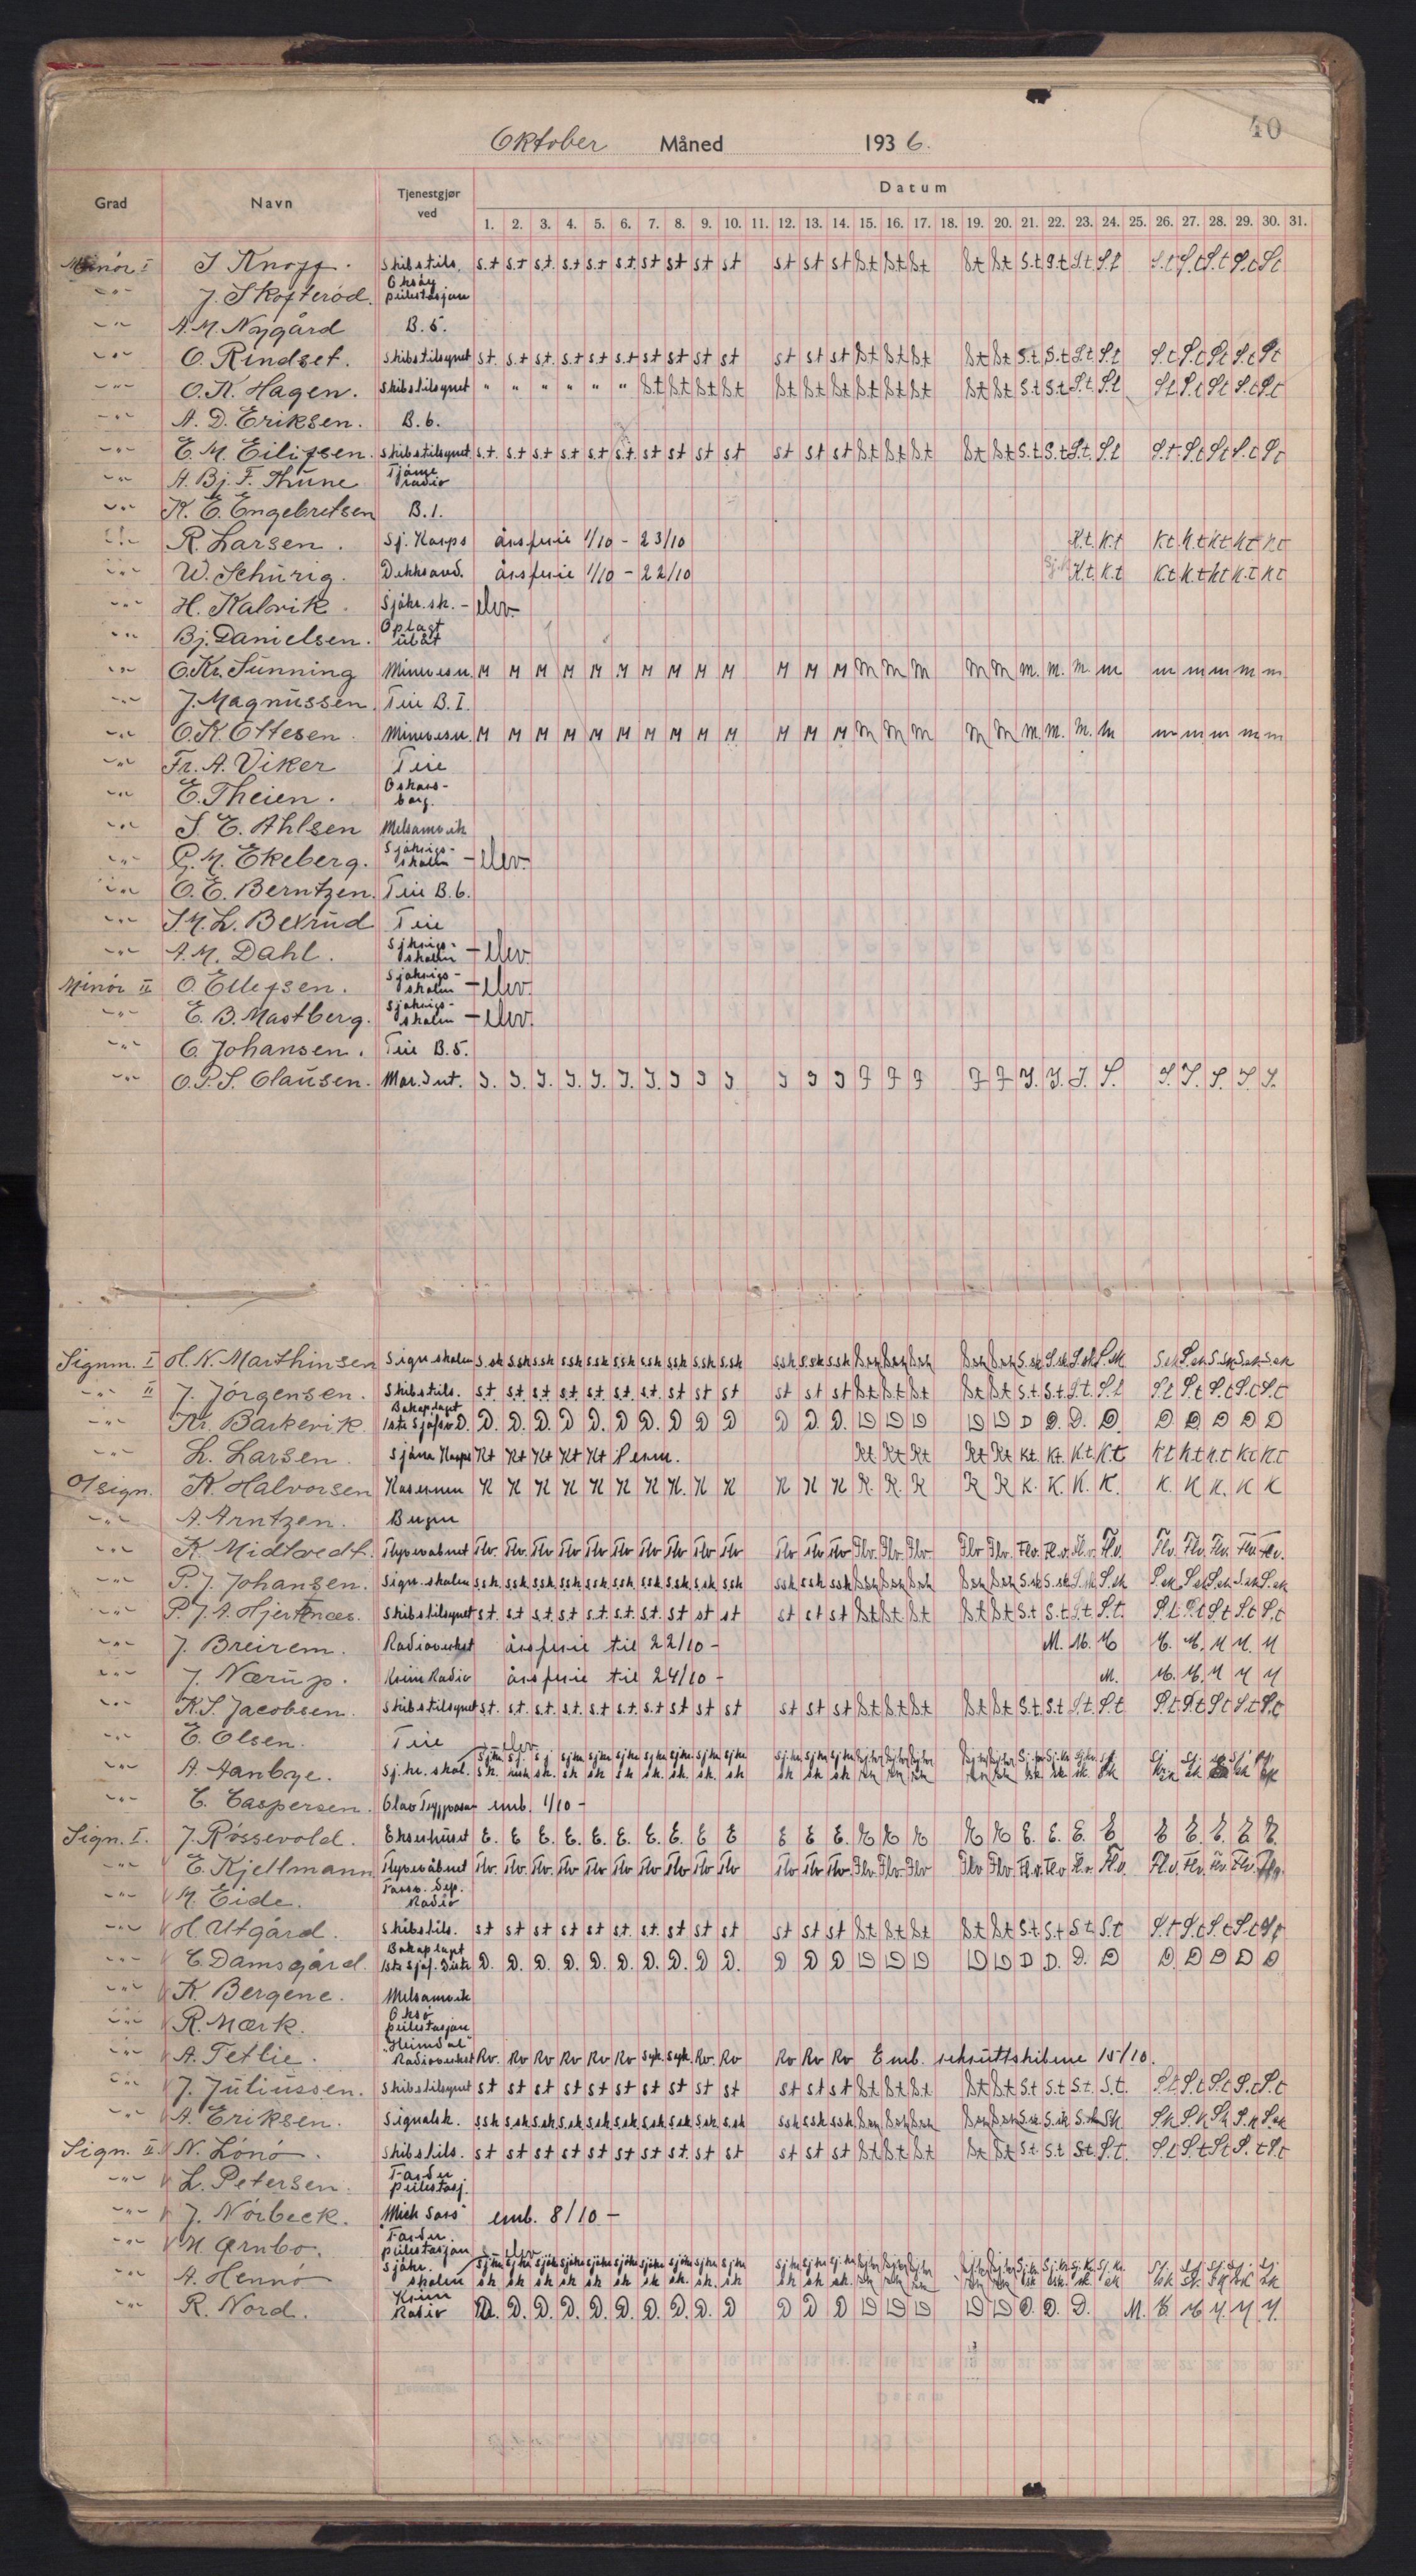 40
Oktober Måned 1936.
Grad Navn Tjenestgjør ved Datum
1. 2. 3. 4. 5. 6. 7. 8. 9. 10. 11. 12. 13. 14. 15. 16. 17. 18. 19. 20. 21. 22. 23. 24. 25. 26. 27. 28. 29. 30. 31.
Minör I J Knopf. Skibstils. S.t S.t S.t. S.t S.t S.t. St St St St St St St St St St St St S.t S.t S.t S.t S.t S.t S.t S.t St
-"- J. Skofteröd. Oksöy peilestasjon
-"- A. M. Nygård B. 5.
-"- O. Rindset. Skibstilsynet St. S.t St. S.t S.t S.t St St St St St St St St St St St St S.t S.t S.t S.t S.t S.t St S.t St
-"- O. K. Hagen. Skibstilsynet " " " " " " St St St St St St St St St St St St S.t S.t S.t S.t S.t S.t St S.t S.t
-"- A. D. Eriksen. B. 6.
-"- E. M. Eilifsen. Skibstilsynet S.t. S.t S.t S.t S.t S.t. St St St St St St St St St St St St S.t S.t S.t. S.t S.t S.t St S.t St
-"- A. Bj. F. Thune Tjöme radio
-"- K. E. Engebretsen B. 1.
-"- R. Larsen. Sj. Korps årsferie 1/10 - 23/10 K.t. K.t K.t K.t K.t K.t K.t
-"- W. Schürig. Dekksavd. årsferie 1/10 - 22/10 K.t. K.t K.t K.t K.t K.t K.t
-"- H. Kalvik. Sjökr. sk. - elev.
-"- Bj. Danielsen. Oplagt ubåt
-"- O. Kr. Sunning Minevesn. M M M M M M M M M M M M M M M M M M M. M. M. M M M M M M
-"- J. Magnussen. Teie B. I.
-"- O. K. Ottesen. Minevesn. M M M M M M M M M M M M M M M M M M M. M. M. M M M M M M
-"- Fr. A. Viker Teie
-"- E. Theien. Oskars-borg.
-"- S. E. Ahlsen Melsomvik
-"- G. M. Ekeberg. Sjökrigs-skolen - elev.
-"- O. E. Berntzen. Teie B. 6.
-"- J. M. L. Bexrud Teie
-"- A. M. Dahl. Sjkrigs-skolen - elev.
Minör II O. Ellefsen. Sjökrigs-skolen - elev.
-"- E. B. Mastberg. Sjökrigs-skolen - elev.
-"- O. Johansen. Teie B. 5.
-"- O. P. S. Clausen. Mar. Int. J. J. J. J. J. J. J. J J J J J J J J J J J J. J. J. J. J. J. J. J. J.
Signm. I H. N. Marthinsen Sign skolen S.sk S.sk S.sk S.sk S.sk S.sk S.sk S.sk S.sk S.sk S.sk S.sk S.sk S.sk S.sk S.sk S.sk S.sk S.sk S.sk S.sk S.sk S.sk S.sk S.sk S.sk S.sk
-"- II J. Jörgensen. Skibstils. S.t S.t S.t. S.t. S.t. S.t. S.t. St St St St St St St St St St St S.t. S.t. S.t. S.t S.t S.t S.t S.t S.t
-"- Kr. Barkevik. D. D. D. D D D D. D D D D D. D. D D D D D D D. D. D. D. D. D D D
-"- L. Larsen. Sjöm Korps Kt Kt Kt Kt Kt Perm. Kt Kt Kt Kt Kt Kt. Kt. K.t. K.t. Kt Kt K.t Kt Kt
O/sign. K. Halvorsen Kasernen K K K K K K K K. K K K K K K. K. K K K K. K. K. K. K. K K. K K
-"- A. Arntzen. Bergen
-"- K. Midtvedt. Flyvevåbnet Flv. Flv. Flv. Flv Flv Flv Flv Flv Flv Flv Flv Flv Flv Flv. Flv. Flv Flv Flv. Flv. Fl.v. Fl.v. Fl.v. Flv. Flv. Flv. Flv. Flv.
-"- P. J. Johansen. Sign. skolen S.sk. S.sk S.sk. S.sk. S.sk. S.sk. S.sk. S.sk. S.sk S.sk S.sk S.sk S.sk S.sk S.sk S.sk S.sk S.sk S.sk S.sk S.sk S.sk S.sk S.sk S.sk S.sk S.sk
-"- P. J. A. Hjertnæs. Skibstilsynet S.t. S.t S.t. S.t S.t. S.t. S.t. St St St St St St St St St St St S.t S.t. S.t. S.t. S.t. S.t St S.t S.t
-"- J. Breirem. Radioverkst årsferie til 22/10 - M. M. M M. M. M M. M
-"- J. Nærup. Krim Radio årsferie til 24/10 - M. M. M. M M M
-"- K. S. Jacobsen. Skibstilsynet St. S.t. S.t. S.t. S.t S.t. S.t St St St St St St St St St St St S.t. S.t S.t. S.t S.t S.t St S.t S.t
-"- E. Olsen. Teie
-"- A. Aanbye. Sj. kr. skol. - elev
-"- C. Caspersen. Olav Tryggvason emb. 1/10 -
Sign. I. J. Rössevold. Ekserhuset E. E E. E. E. E. E. E. E E E E E. E E E E E E. E. E. E E E. E. E. E.
-"- E. Kjellmann Flyvevåbnet Flv. Flv. Flv. Flv. Flv. Flv. Flv. Flv Flv Flv Flv Flv Flv. Flv. Flv. Flv Flv Flv. Fl.v. Fl.v Fl.v. Fl.v. Fl.v. Flv. Flv. Flv. Flv.
-"- M. Eide. Forsv. Dep. Radio
-"- H. Utgård. Skibstils. St St St St St St. S.t. St St St St St St St St St St St S.t. S.t S.t. S.t S.t S.t S.t S.t St
-"- C. Damsgård. D. D. D. D. D. D. D. D. D. D. D D D D D D D D D D. D. D D. D D D D
-"- K Bergene. Melsomvik
-"- R. Mærk. Oksö peilestasjon
-"- A. Tetlie. "Heimdal" Radioverkst Rv. Rv Rv Rv Rv Rv Syk. Syk. Rv. Rv Rv Rv Rv Emb. rekruttskibene 15/10.
-"- J. Juliussen. Skibstilsynet St St St St St St St St St St St St St St St St St St S.t S.t S.t. S.t. S.t S.t St S.t S.t
-"- A. Eriksen. Signalsk. S.sk S.sk S.sk S.sk S.sk S.sk S.sk S.sk S.sk S.sk S.sk S.sk S.sk. S.sk S.sk S.sk S.sk S.sk S.sk S.sk S.sk Sk. S.k S.k Sk S.k S.sk
Sign. II N. Lönö. Skibstils. St St St St St St St St. St St St St St St St St St St S.t. S.t St. S.t. S.t S.t St S.t St
-"- L. Petersen. Færder peilestasj.
-"- J. Nörbeck. "Mich Sars" emb. 8/10 -
-"- M. Ørnbo. Færder peilestasjon
-"- A. Hennö Sjökr. skolen - elev
-"- R. Nord. Krim Radio D. D. D. D. D. D. D. D. D. D D D D D D D D D D. D. D. M. M M M. M. M.